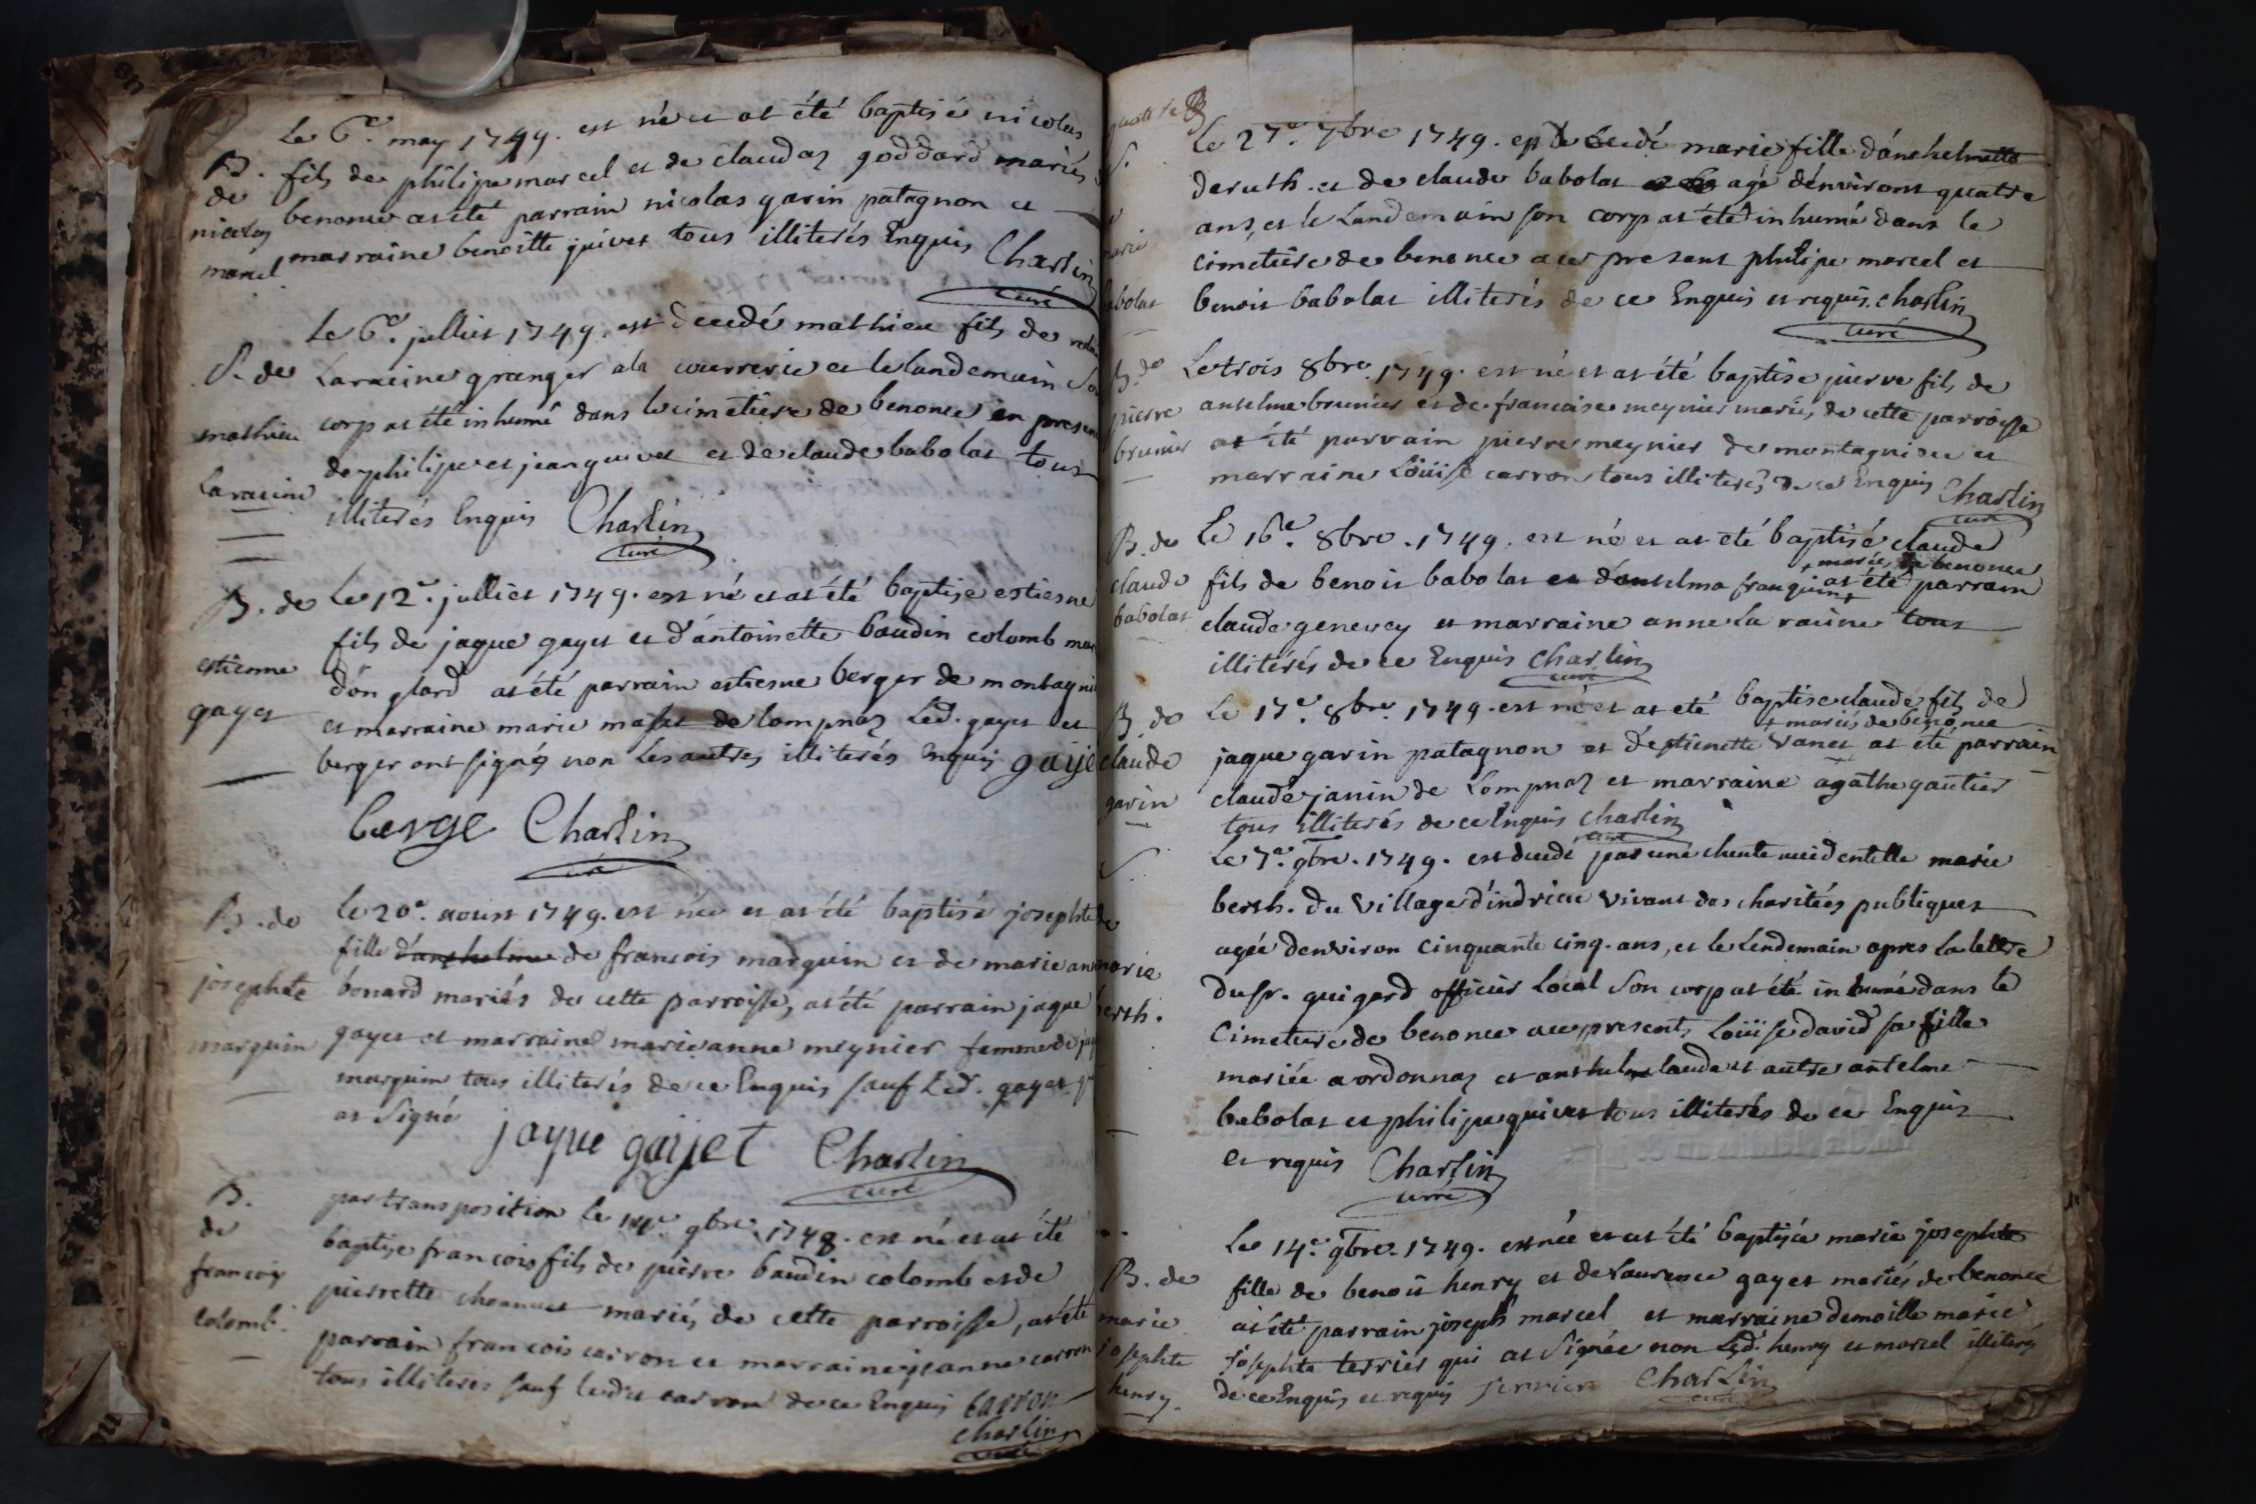 Le 6e. may 1749. est né et at été baptisé nicolas
B. de nicolas marcel
fils de philipe marcel et de claudaz goddard mariés
benonce at été parrain nicolas garin patagnon et
marraine benoitte quivet tous illiterés Enquis Charlin
curé
Le 6e. julliet 1749. est decedé mathieu fils de
S. de mathieu Laracine
Laracine granger ala courrerie et le landemain son
corp at été inhumé dans le cimetiere de benonce en presen
de philipe et jean quivet et de claude babolat tous
illiterés Enquis Charlin
curé
B. de estienne gayet
Le 12e. julliet 1749. est né et at été baptise estienne
fils de jaque gayet et d'antoinette baudin colomb
d'onglard at été parrain estienne berger de montagni
et marraine marie de lompnaz Led. gayet et
berger ont signés non Les autres illiterés Enquis gaije
berge Charlin
curé
B. de josephte marquin
le 20e. aoust 1749. est née et at été baptisé josephte
fille d'anthelme de francois marquin et de marie an
bonard mariés de cette parroisse, at été parrain jaque
gayet et marraine marieanne meynier femme de
marquin tous illiterés de ce Enquis sauf Led. gayet
at signé jaque gaijet Charlin
curé
B. de francois colomb.
par transposition le 14e. 9bre. 1748. est né et at été
baptise francois fils de pierre baudin colomb et de
pierrette mariés de cette parroisse, at été
parrain francois carron et marraine jeanne carron
tous illiteres sauf ledit carron de ce Enquis carron
Charlin
curé
S. marie babolat
Le 27e. 7bre 1749. est decedé marie fille d'anthelmette
deruth. et de claude babolat agé d'environt quatre
ans, et le Landemain son corp at été inhumé dans le
cimetiere de benonce avec present philipe marcel et
benoit babolat illiterés de ce Enquis et requis. charlin
curé
B. de pierre brunier
Le trois 8bre. 1749. est né et at été baptise pierre fils de
anselme brunier et de francoise meynier mariés de cette parroisse
at été parrain pierre meynier de montagnieu et
marraine Loüise carron tous illiterés de ce Enquis Charlin
curé
B. de claude babolat
Le 16e. 8bre. 1749. est né et at été baptisé claude
+ mariés de benonce
fils de benoit babolat et d'antelma franquin + at été parrain
claude genevey et marraine anne La racine tous
illitérés de ce Enquis Charlin
curé
B. de claude garin
Le 17e. 8bre. 1749. est né et at eté baptise claude fils de
+ mariés de benonce
jaque garin patagnon et d'estienette vanet at été parrain
claude janin de Lompnaz et marraine agathe gautier
tous illiterés de ce Enquis Charlin
curé
S. de marie berth.
Le 7e. 9bre. 1749. est decedé par une cheute accidentelle marie
berth. du village d'indrieu vivant des charitées publiques
agée denviron cinquante cinq. ans, et le Lendemain apres La lettre
du sr. guigard officier Local son corp at été inhumé dans le
Cimetiere de benonce avec present, Loüise david sa fille
mariée a ordonnaz et anthelme et autre antelme
babolat et philipe quivet tous illiterés de ce Enquis
et requis Charlin
curé
B. de marie josephte henry.
Le 14e. 9bre. 1749. est née et at été baptisée marie josephte
fille de benoit henry et de Laurence gayet mariés de benonce
at été parrain joseph marcel et marraine demoille marie
josephte terrier qui at signée non Led. henry et marcel illiterés
de ce Enquis et requis Charlin
curé